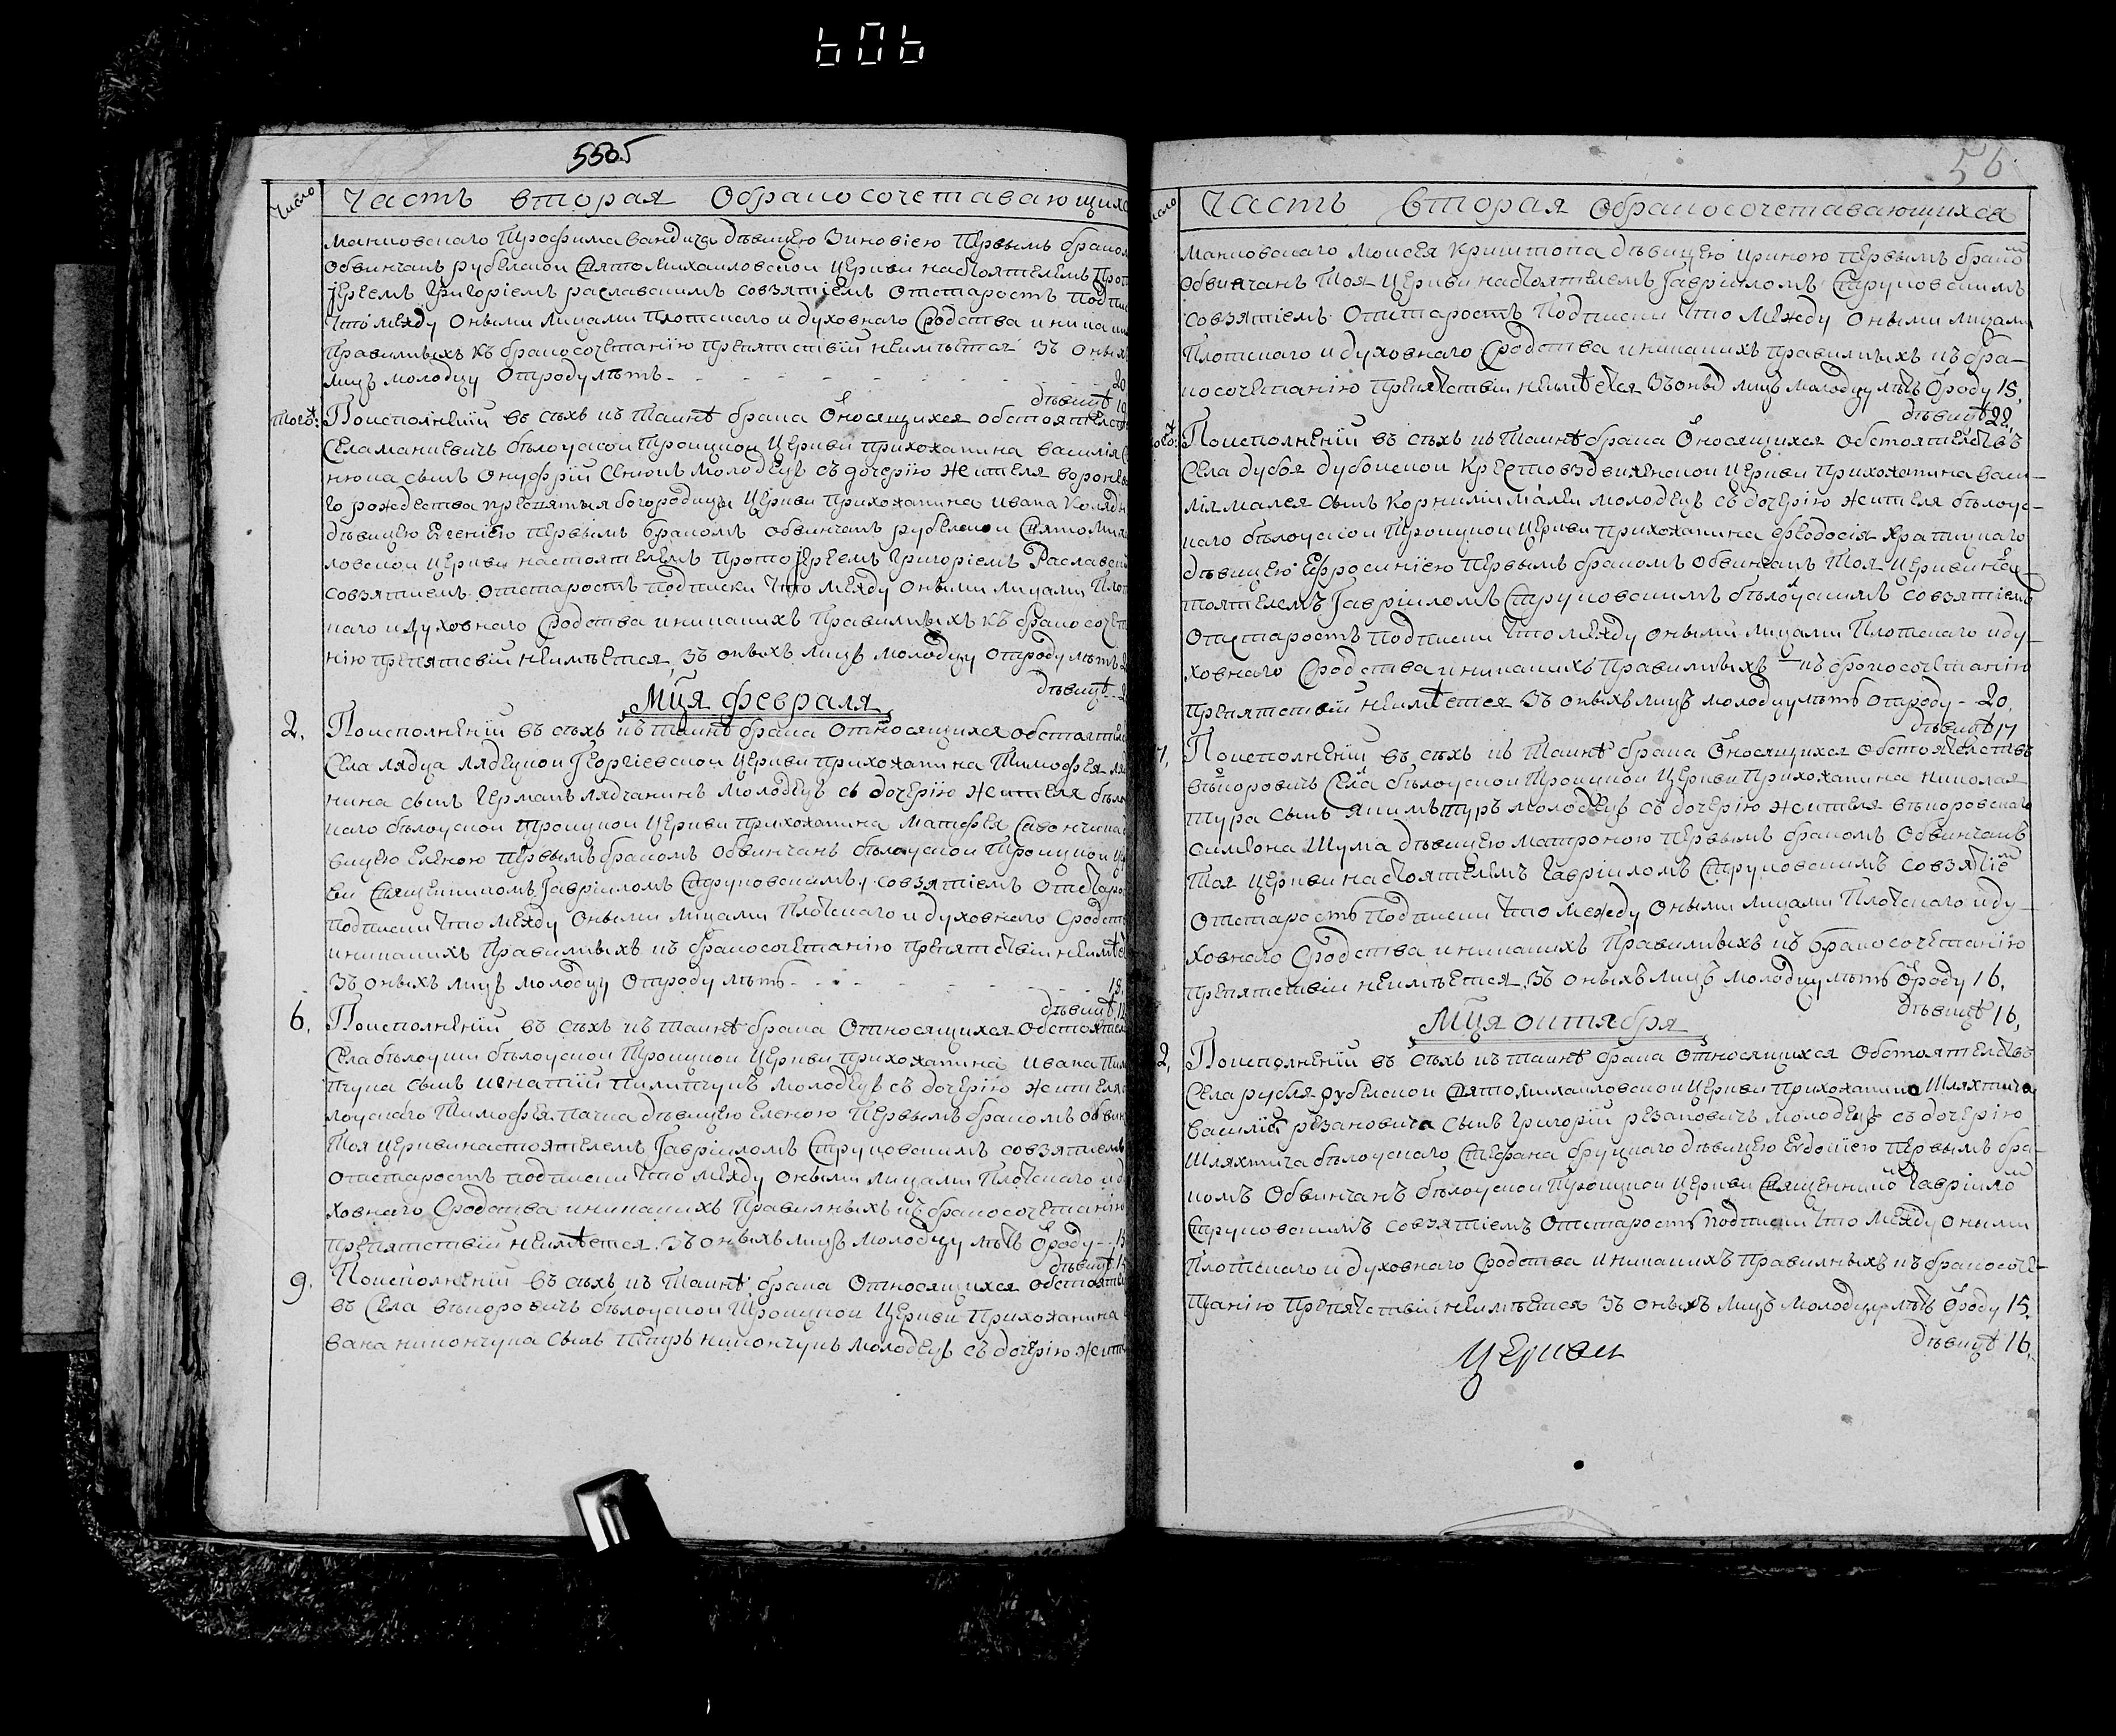 606
5505
Число
Часть вторая Обракосочетавающихс
Манковскаго Трофима вандича девицею Зиновіею Первымъ браком
Обвинчанъ рубелской Святомихаиловской Церкви настоятелемъ Прот
Іереемъ Григоріемъ раславскимъ совзятіемъ Отстаростъ Подпис
Что между Оными Лицами плотскаго и духовнаго Сродства иника
Правилныхъ къ бракосочетанію препятствій неимѣется Зъ Оных
лицъ молодцу Отроду лѣтъ 20
девицѣ 19
Тогож: Поисполненіи въ сѣхъ къ Таинѣ брака Относящихся обстоятелст
Села маниевичъ бѣлоуской Троицкой Церкви прихожанина василія С
нюка сынъ Онуфрій Сенюкъ молодецъ съ дочерію жителя воронев
го рождества пресвятыя богородицы Церкви Прихожанина Ивана Коляд
девицею Евгеніею первымъ бракомъ обвинчанъ рубелской Святоми
ловской Церкви настоятелемъ ПротоІереемъ Григоріемъ Раславск
совзятіемъ Отстаростъ подписки Что между Оными лицами Плот
скаго и духовнаго Сродства иникакихъ Правилныхъ къ бракосочет
нію препятствій неимѣется, Зъ оныхъ лицъ молодцу отроду лѣтъ 2
девицѣ
Мця февраля
2. Поисполненіи въ сѣхъ къ таинѣ брака Относящихся обстоятел
Села лядца лядецкой Георгіевской Церкви прихожанина Тимофея ля
нина сынъ Германъ лядчанинъ молодецъ съ дочерію жителя бѣло
каго бѣлоуской Троицкой Церкви прихожанина Матфея
вицею Еленою первымъ бракомъ Обвинчанъ бѣлоуской Троицкой Це
ви Священникомъ Гавріиломъ Струковскимъ, совзятіемъ Отстаро
подписки Что между Оными лицами Плотскаго и духовнаго Сродст
иникакихъ Правилныхъ къ бракосочетанію препятствіи неимѣ
Зъ оныхъ лицъ молодцу Отроду лѣтъ 18.
девицѣ
6. Поисполненіи въ сѣхъ къ таинѣ брака Относящихся Обстояте
Села бѣлоуши бѣлоуской Троицкой Церкви прихожанина Ивана Пил
пчука сынъ игнатій пилипчукъ молодецъ съ дочерію жителя
лоускаго Тимофея пачка девицею Еленою Первымъ бракомъ обвин
Тоя Церкви настоятелемъ Гавріиломъ Струковскимъ совзятіемъ
отстаростъ подписки Что между Оными лицами Плотскаго и д
ховнаго Сродства иникакихъ Правилныхъ къ бракосочетанію
препятствій неимѣется. Зъ оныхъ лицъ молодцу лѣтъ Отроду
девицѣ
9. Поисполненіи въ сѣхъ къ Таинѣ брака Относящихся обстояте
въ Села вѣчоровичъ бѣлоуской Троицкой Церкви Прихожанина
вана никончука сынъ Петръ никончукъ молодецъ съ дочерію жит
56
Часть вторая Обракосочетавающихся
Манковскаго Моисея Криштопа девицею Ириною первымъ брако
Обвинчанъ Тоя Церкви настоятелемъ Гавріиломъ Струковскимъ
совзятіемъ Отстаростъ Подписки Что Между Оными лицами
Плотскаго и духовнаго Сродства иникакихъ правилныхъ къ бра-
косочетанію препятствіи неимѣется Зъоныхъ лицъ молодцу лѣтъ Отроду 18.
девицѣ 22.
Поисполненіи въ сѣхъ къ Таинѣ брака Относящихся обстоятелствъ
Села дубоя дубойской Крестовоздвиженской Церкви прихожанина васи-
лія малея сынъ Корнилій Малей молодецъ съ дочерію жителя бѣлоус-
каго бѣлоуской Троицкой Церкви прихожанина Феодосія
девицею Ефросиніею Первымъ бракомъ Обвинчанъ Тоя Церкви нас-
тоятелемъ Гавріиломъ Струковскимъ бѣлоускимъ совзятіемъ
Отстаростъ подписки Что между оными лицами Плотскаго и ду-
ховнаго Сродства иникакихъ правилныхъ къ бракосочетанію
препятствій неимѣется Зъ оныхъ лицъ молодцу лѣтъ Отроду - 20.
девицѣ 17
7. Поисполненіи въ сѣхъ къ Таинѣ брака Относящихся обстоятелствъ
вѣчоровичъ Села бѣлоуской Троицкой Церкви Прихожанина николая
Тура сынъ Якимъ Туръ молодецъ съ дочерію жителя вѣчоровскаго
Симеона Шума девицею Матроною Первымъ бракомъ Обвинчанъ
Тоя Церкви настоятелемъ Гавріиломъ Струковскимъ совзятіе
Отстаростъ Подписки Что между Оными лицами Плотскаго иду-
ховнаго Сродства иникакихъ Правилныхъ къ бракосочетанію
препятствіи неимѣется. Зъ оныхъ лицъ молодцу лѣтъ Отроду 16.
девицѣ 16.
Мця октября
2. Поисполненіи въ сѣхъ къ таинѣ брака Относящихся Обстоятелствъ
Села рубля рубелской Святомихаиловской Церкви Прихожанина Шляхтича
василія резановича сынъ Григорій резановичъ молодецъ съ дочерію
Шляхтича бѣлоускаго Стефана Девицею Евдокіею первымъ бра-
комъ Обвинчанъ бѣлоуской Троицкой Церкви Священнико Гавріило
Струковскимъ совзятіемъ Отстаростъ подписки Что Между оными
Плотскаго и духовнаго Сродства иникакихъ Правилныхъ къ бракосоче-
танію Препятствій неимѣется Зъ оныхъ лицъ молодцу лѣтъ Отроду 15.
девицѣ 16.
Церкви